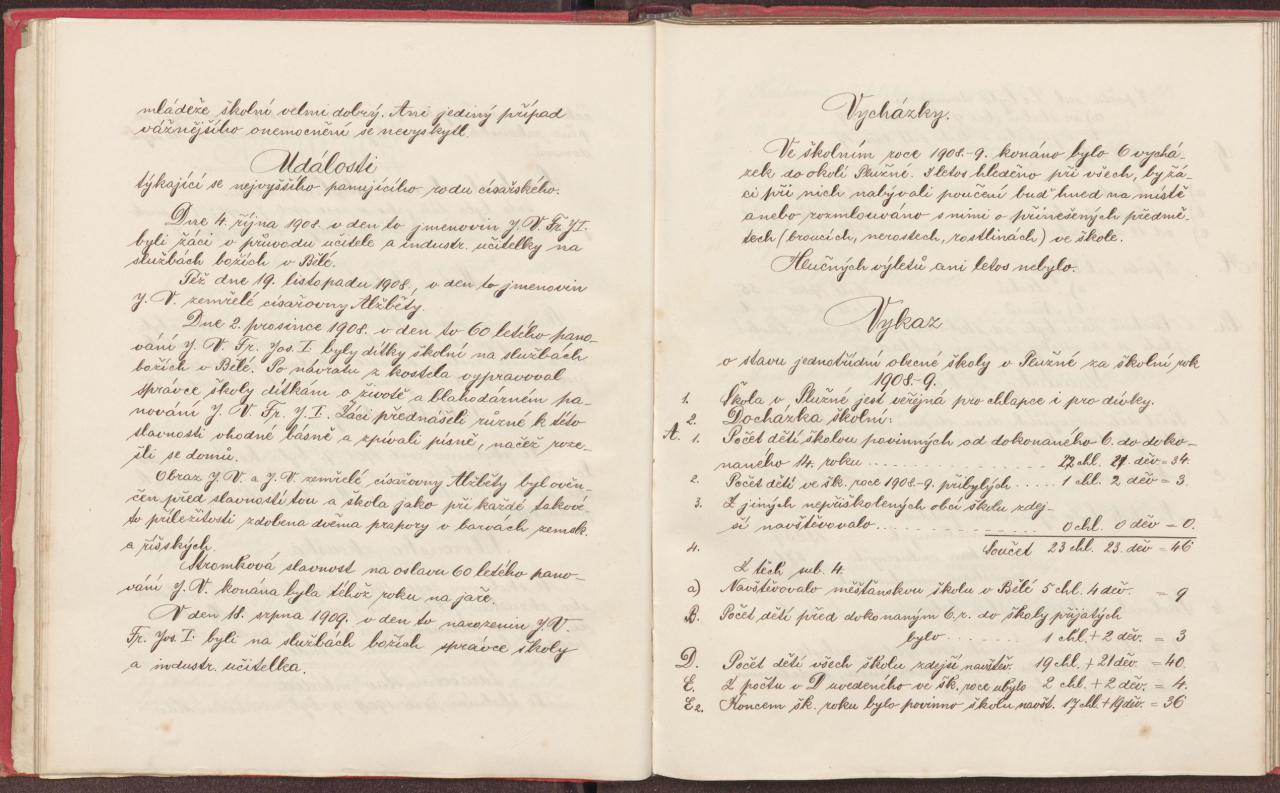 mládeže školní velmi dobrý. Ani jediný případ
vážnějšího onemocnění se nevyskytl.
Události
týkající se nejvyššího panujícího rodu císařského.
Dne 4. října 1908. v den to jmenovin J. V. Fr. J. I.
byli žáci v průvodu učitele a industr. učitelky na
službách božích v Bělé.
Též dne 19. listopadu 1908., v den to jmenovin
J. V. zemřelé císařovny Alžběty.
Dne 2. prosince 1908. v den to 60 letého pano-
vání J. V. Fr. Jos. I. byly dítky školní na službách
božích v Bělé. Po návratu z kostela vypravoval
správce školy dítkám o životě a blahodárném pa-
nování J. V. Fr. J. I. Žáci přednášeli různé k této
slavnosti vhodné básně a zpívali písně, načež roze-
šli se domů.
Obraz J. V. a J. V. zemřelé císařovny Alžběty byl ověn-
čen před slavností tou a škola jako při každé takové-
to příležitosti zdobena dvěma prapory v barvách zemsk.
a říšských.
Stromková slavnost na oslavu 60 letého pano-
vání J. V. konána byla téhož roku na jaře.
V den 18. srpna 1909. v den to narozenin J. V.
Fr. Jos. I. byli na službách božích správce školy
a industr. učitelka.
Vycházky.
Ve školním roce 1908.-9. konáno bylo 6 vychá-
zek do okolí Plužné. I letos hleděno při všech, by žá-
ci při nich nabývali poučení buď hned na místě
anebo rozmlouváno s nimi o přinešených předmě-
tech (broucích, nerostech, rostlinách) ve škole.
Hlučných výletů ani letos nebylo.
Výkaz
o stavu jednotřídní obecné školy v Plužné za školní rok
1908-9.
1. Škola v Plužné jest veřejná pro chlapce i pro dívky.
2. Docházka školní:
A. 1. Počet dětí školou povinných od dokonaného 6. do doko-
naného 14. roku . . . . . . . . . . . . 22 chl. 21. děv = 34.
2. Počet dětí ve šk. roce 1908-9. přibylých . . . . . 1 chl. 2 děv = 3.
3. Z jiných nepřiškolených obcí školu zdej-
ší navštěvovalo . . . . . . . . . . . . 0 chl. 0 děv = 0.
4. Součet 23 chl. 23. děv = 46
Z těch sub. 4.
a) Navštěvovalo měšťanskou školu v Bělé 5 chl. 4 děv. = 9
B. Počet dětí před dokonaným 6. r. do školy přijatých
bylo . . . . . . . . 1 chl. + 2 děv. = 3
D. Počet dětí všech školu zdejší navštěv. 19 chl. + 21 děv. = 40.
E. Z počtu v D uvedeného ve šk. roce ubylo 2 chl. + 2 děv. = 4.
E2. Koncem šk. roku bylo povinno školu navšt. 17 chl. + 19 děv. = 36